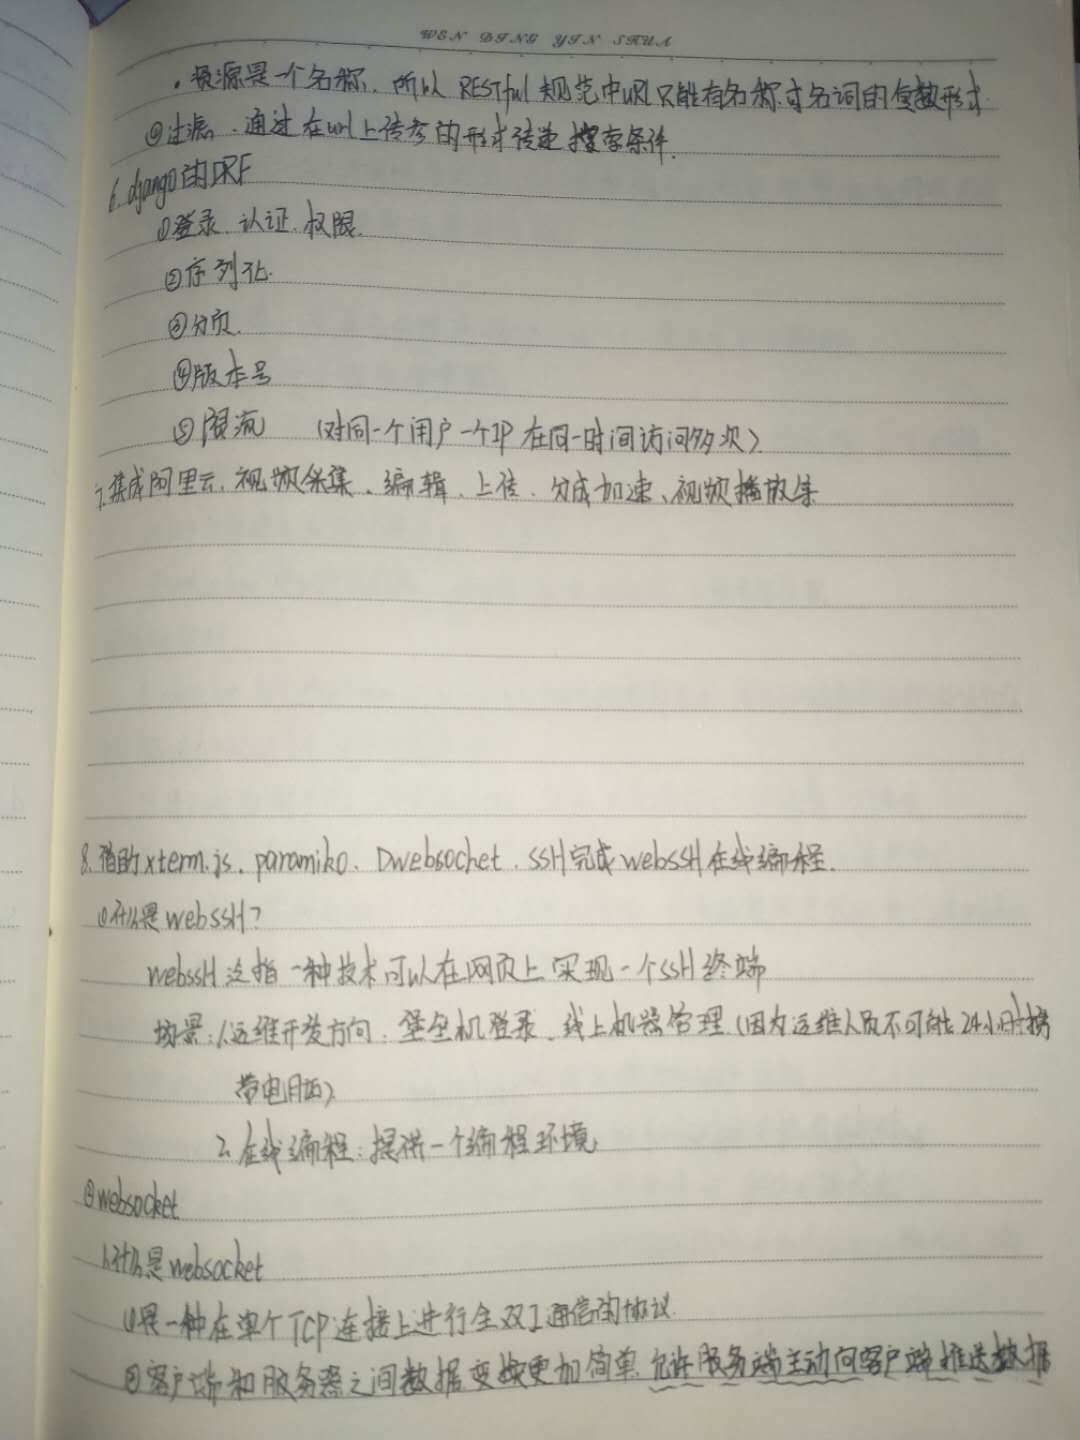 WEN DING YIN SHUA
. 资源是一个名称, 所以 RESTful 规范中URL只能有名称或名词的复数形式
④过滤, 通过在url上传参的形式传递搜索条件.
6. django的DRF
①登录、认证、权限.
②序列化.
③分页.
④版本号
⑤限流 (对同一个用户一个IP在同一时间访问多次)
7. 集成阿里云, 视频采集、编辑、上传、分成加速、视频播放集
8. 借助xterm.js、paramiko、Dwebsocket、SSH完成webSSH在线编程.
①什么是webSSH?
webSSH泛指一种技术可以在网页上实现一个SSH终端
场景: 1.运维开发方向: 堡垒机登录、线上机器管理 (因为运维人员不可能24小时携
带电脑)
2. 在线编程: 提供一个编程环境
②websocket
1.什么是websocket
①是一种在单个TCP连接上进行全双工通信的协议.
②客户端和服务器之间数据交换更加简单, 允许服务端主动向客户端推送数据